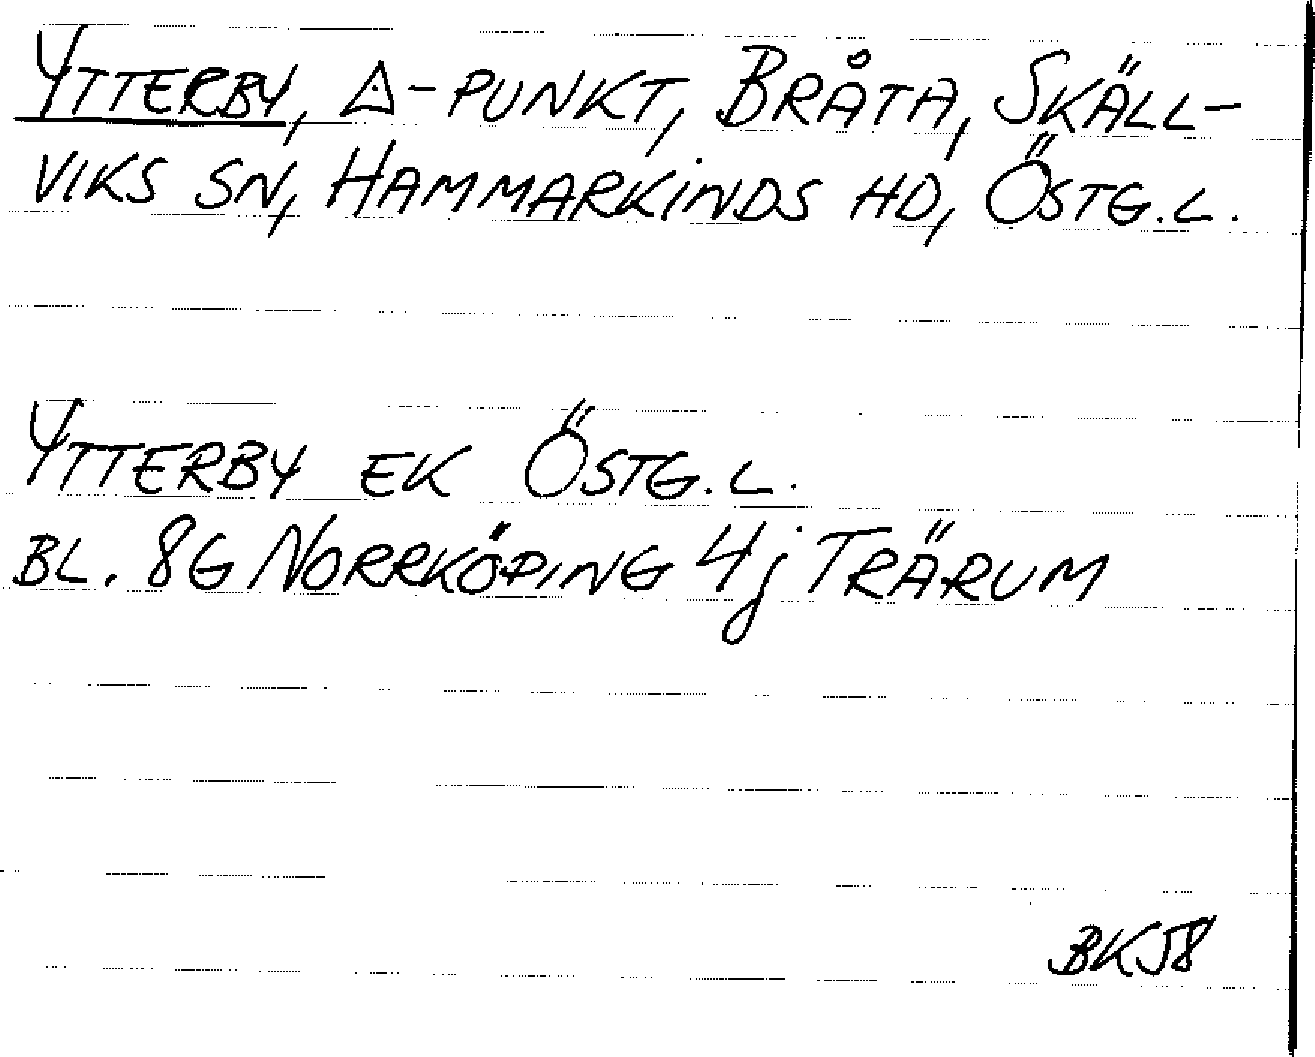 YTTERBY, △-PUNKT, BRÅTA, SKÄLL-
VIKS SN, HAMMARKINDS HD, ÖSTG.L.
YTTERBY EK ÖSTG.L.
BL. 8G NORRKÖPING 4j TRÄRUM
BK58